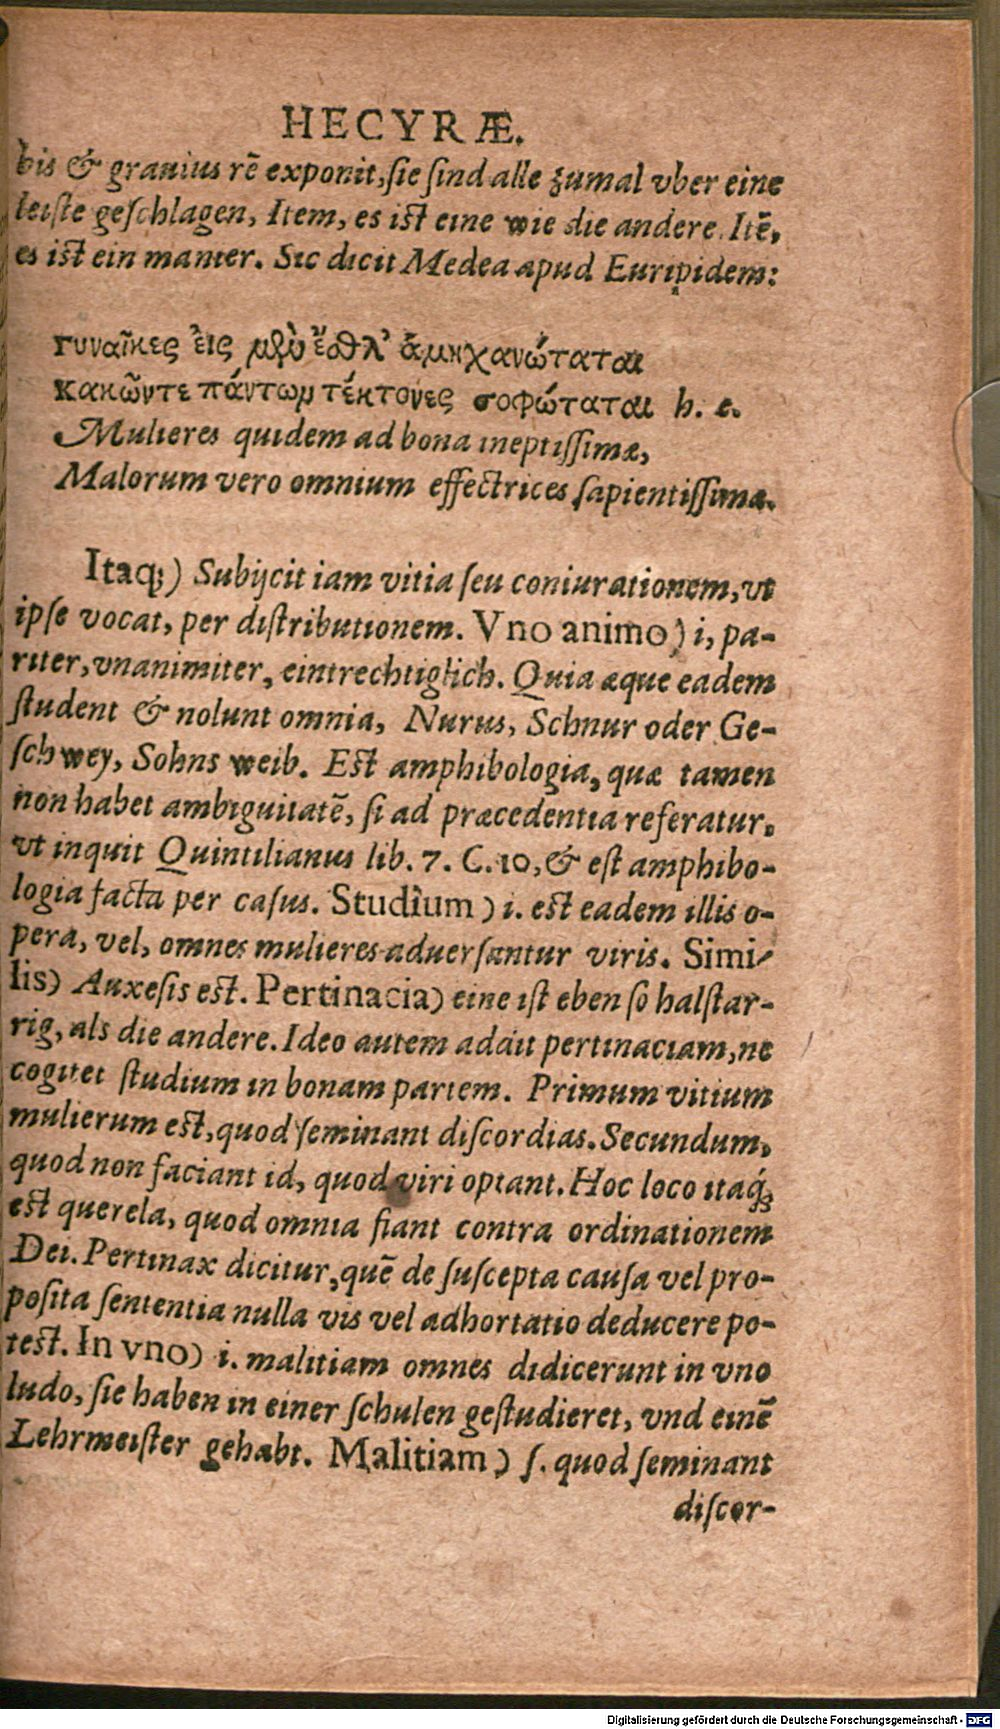 HECYRÆ.
bis & grauius rē exponit, sie sind alle zumal vber eine
leiste geschlagen, Item, es ist eine wie die andere. Itē,
es ist ein manier. Sic dicit Medea apud Euripidem:
γυναῖκες ἐις μϟὺ ἔσθλ' ἀμηχανώταται
κακῶντε πάντωμ τέκτονες σοφώταται h. e.
Mulieres quidem ad bona ineptissimæ,
Malorum vero omnium effectrices sapientissimæ.
Itaq;) Subijcit iam vitia seu coniurationem, vt
ipse vocat, per distributionem. Vno animo) i, pa-
riter, vnanimiter, eintrechtiglich. Quia æque eadem
student & nolunt omnia, Nurus, Schnur oder Ge-
schwey, Sohns weib. Est amphibologia, quæ tamen
non habet ambiguitatē, si ad præcedentia referatur.
vt inquit Quintilianus lib. 7. C. 10, & est amphibo-
logia facta per casus. Studium) i. est eadem illis o-
pera, vel, omnes mulieres aduersantur viris. Simi-
lis) Auxesis est. Pertinacia) eine ist eben so halstar-
rig, als die andere. Ideo autem addit pertinaciam, ne
cogitet studium in bonam partem. Primum vitium
mulierum est, quod seminant discordias. Secundum,
quod non faciant id, quod viri optant. Hoc loco itaq́;
est querela, quod omnia fiant contra ordinationem
Dei. Pertinax dicitur, quē de suscepta causa vel pro-
posita sententia nulla vis vel adhortatio deducere po-
test. In vno) i. malitiam omnes didicerunt in vno
ludo, sie haben in einer schulen gestudieret, vnd einē
Lehrmeister gehabt. Malitiam) s. quod seminant
discor-
Digitalisierung gefördert durch die Deutsche Forschungsgemeinschaft - DFG